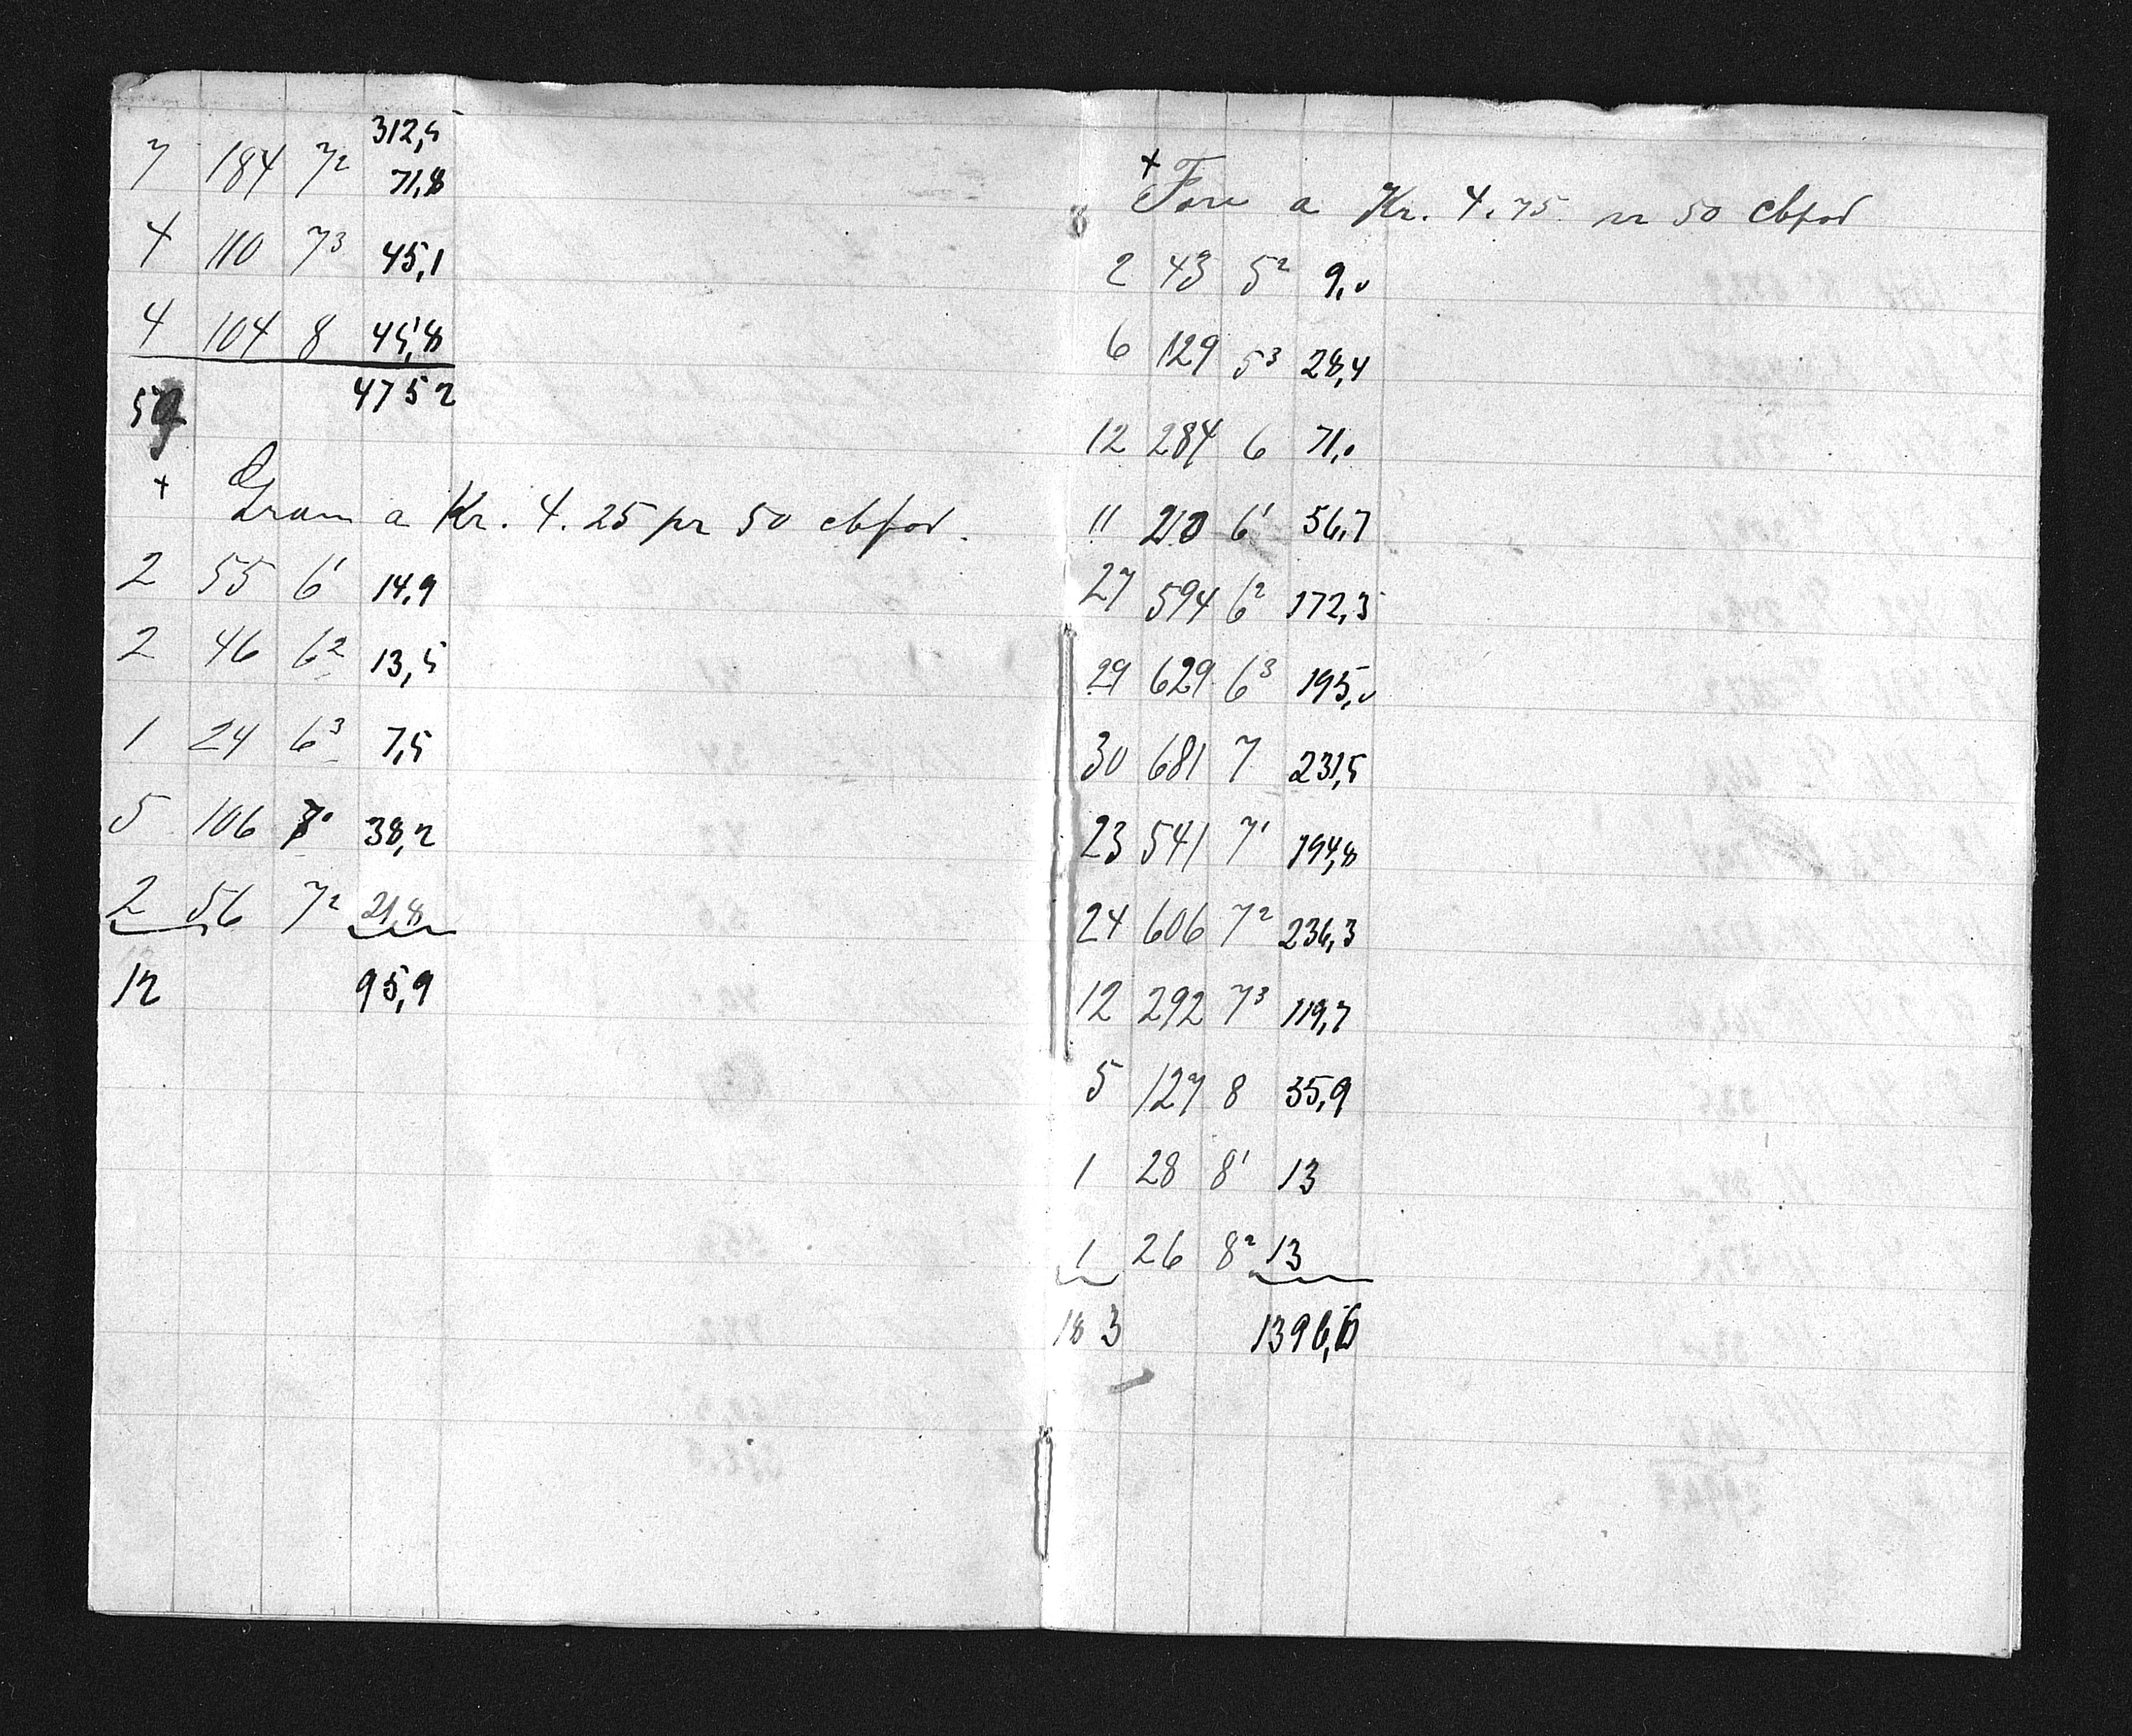 312,5
7 184 7² 71,8
4 110 7³ 45,1
4 104 8 45,8
59 475 2
+ Gran a Kr. 4.25 pr 50 cbfod.
2 55 6¹ 14,9
2 46 6² 13,5
1 24 6³ 7,5
5 106 7 38,2
2 56 7² 21,8
12 95,9
+ Furu a Kr. 4.75 pr 50 cbfod
2 43 5² 9,0
6 129 5³ 28,4
12 284 6 71,0
11 210 6¹ 56,7
27 594 6² 172,3
29 629 6³ 195,0
30 681 7 231,5
23 541 7¹ 194,8
24 606 7² 236,3
12 292 7³ 119,7
5 127 8 55,9
1 28 8¹ 13
1 26 8² 13
183 1396,6